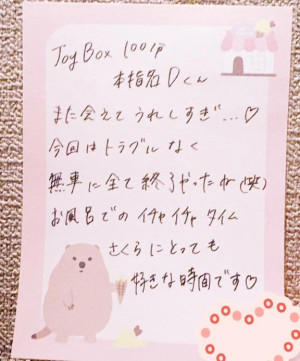 Joy Box 100分
本指名Dくん
また会えてうれしすぎ…♡
今回はトラブルなく
無事に全て終了やったね(笑)
お風呂でのイチャイチャタイム
さくらにとっても
好きな時間です♡